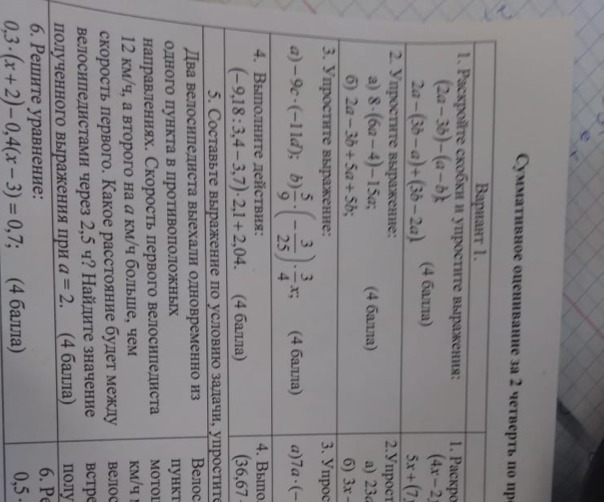 Суммативное оценивание за 2 четверть по пр
Вариант 1.
1. Раскройте скобки и упростите выражения:
(2a – 3b) – (a – b);
2a – (3b – a) + (3b – 2a). (4 балла)
2. Упростите выражение:
а) 8·(6a – 4) – 15a;
б) 2a – 3b + 5a + 5b; (4 балла)
3. Упростите выражение:
a) –9c·(–11d); b) 5/9·(–3/25)·3/4x; (4 балла)
4. Выполните действия:
(–9,18:3,4–3,7)·2,1+2,04. (4 балла)
5. Составьте выражение по условию задачи, упростите
Два велосипедиста выехали одновременно из
одного пункта в противоположных
направлениях. Скорость первого велосипедиста
12 км/ч, а второго на a км/ч больше, чем
скорость первого. Какое расстояние будет между
велосипедистами через 2,5 ч? Найдите значение
полученного выражения при a = 2. (4 балла)
6. Решите уравнение:
0,3·(x + 2) – 0,4(x – 3) = 0,7; (4 балла)
1. Раскр
(4x – 2
5x + (7
2.Упрост
а) 23
б) 3x –
3. Упрос
a)7a·(–
4. Выпо
(36,67
Велос
пункт
мото
км/ч
вело
встр
полу
6. Ре
0,5·